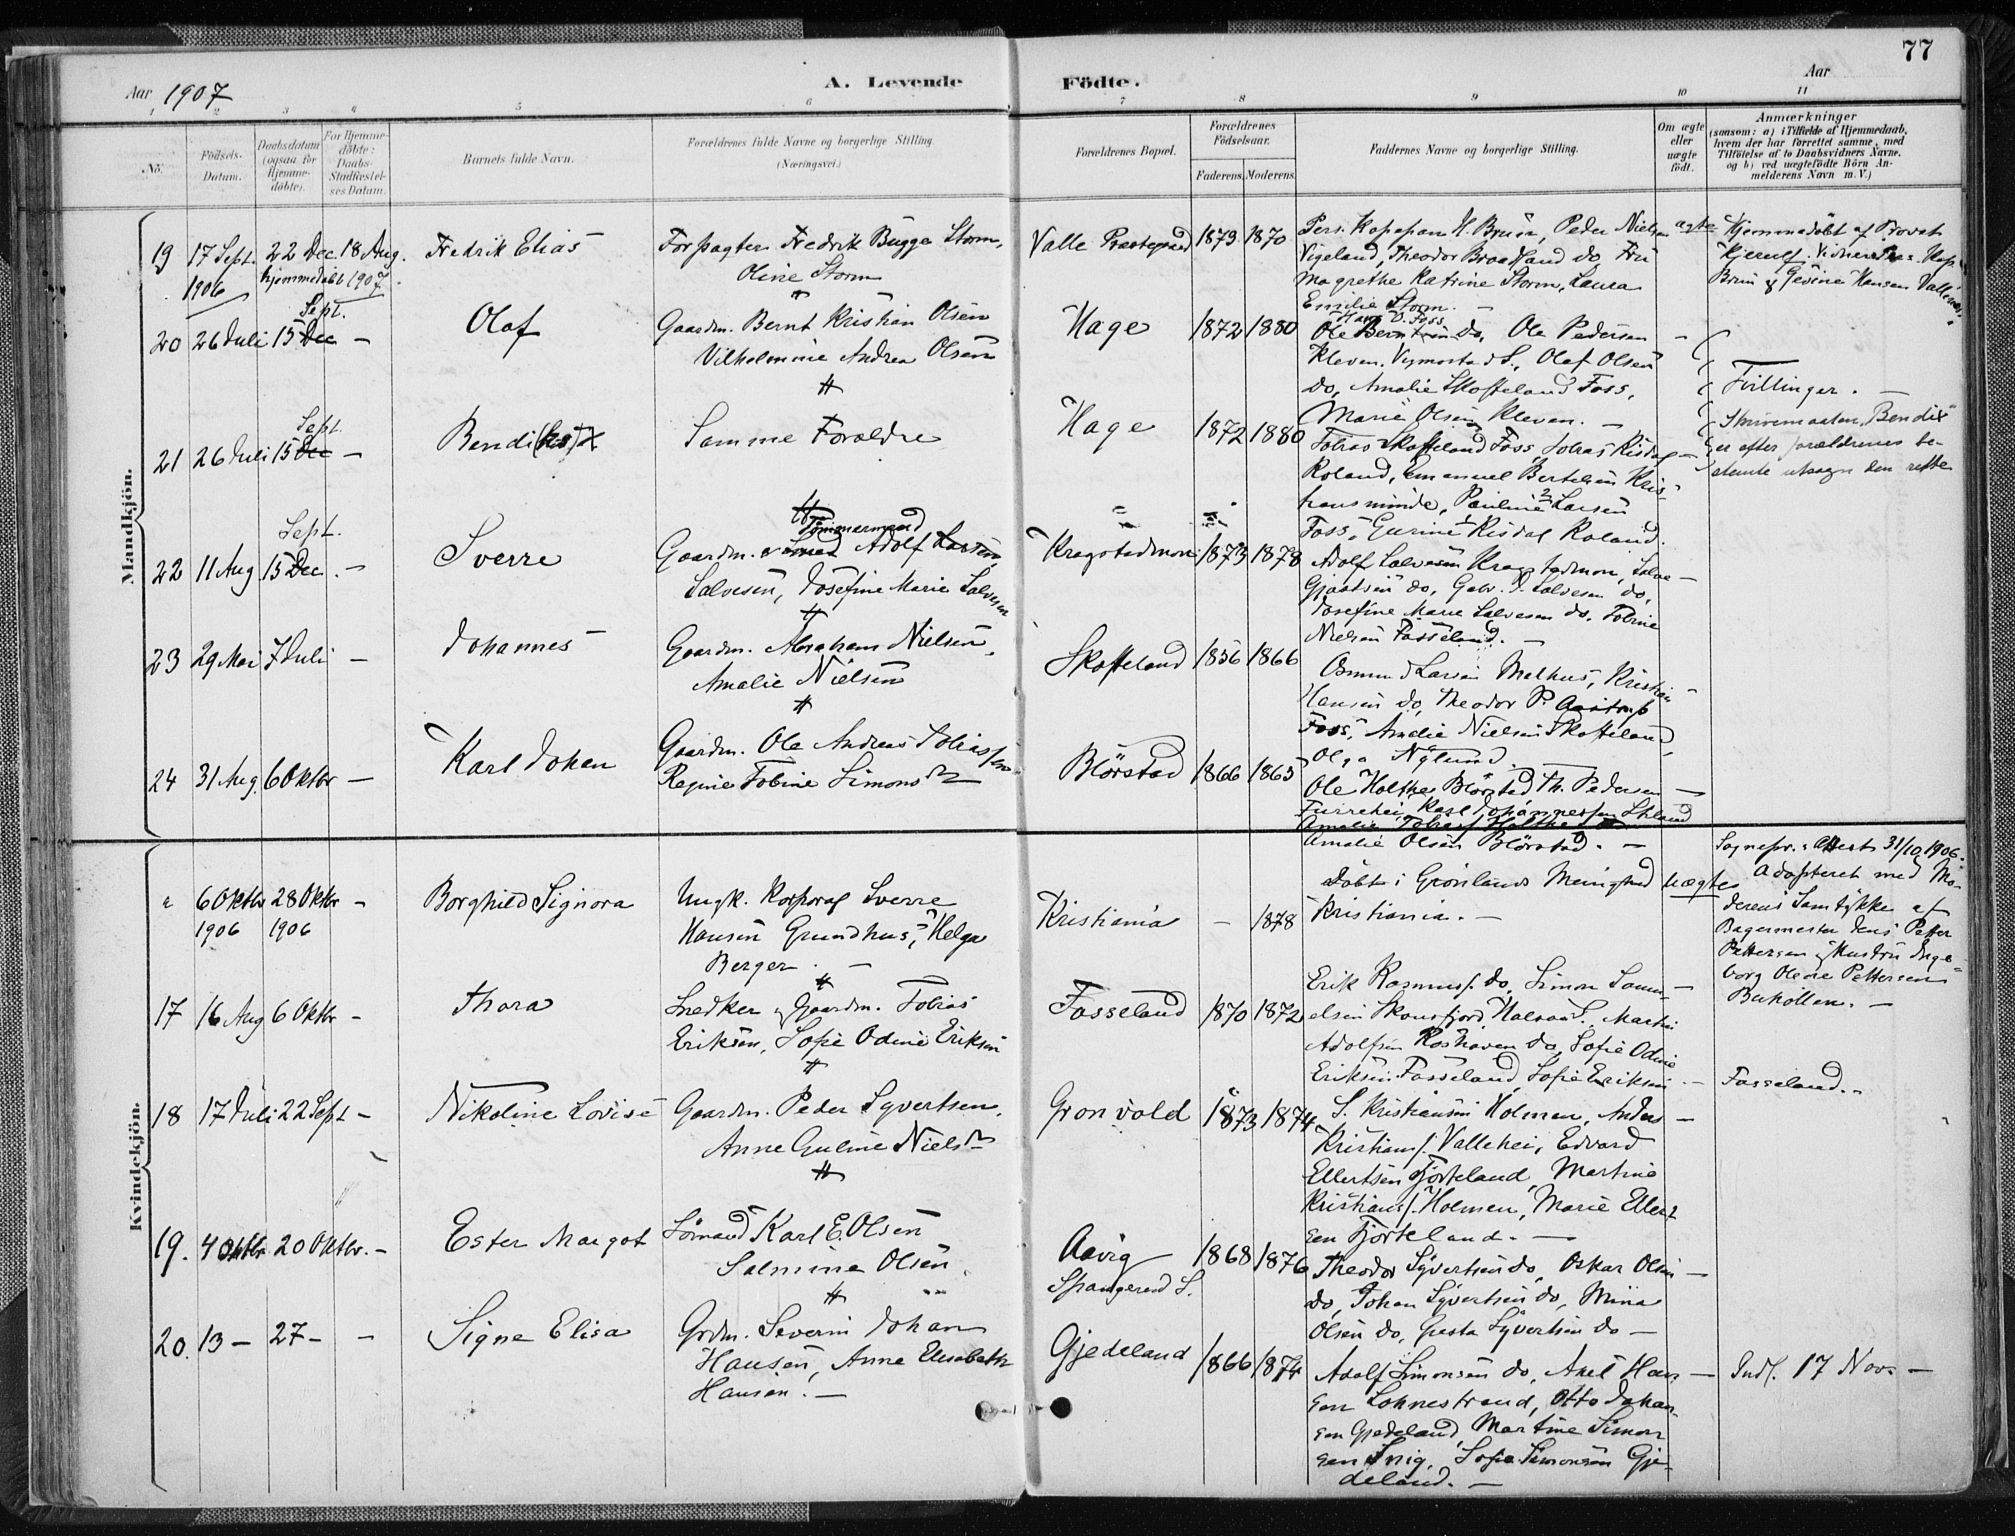 77
Aar 1907
A. Levende Födte.
Aar
1 2 3 4 5 6 7 8 9 10 11
No.
Födsels-Datum.
Daabsdatum (ogsaa for Hjemmedöbte).
For Hjemmedöbte: Daabs-Stadfæstelses Datum.
Barnets fulde Navn.
Forældrenes fulde Navne og borgerlige Stilling. (Næringsvei.)
Forældrenes Bopæl.
Forældrenes Födselsaar.
Faderens. Moderens.
Faddernes Navne og borgerlige Stilling.
Om ægte eller uægte födt.
Anmærkninger
(saasom: a) i Tilfælde af Hjemmedaab,
hvem der har forrettet samme, med
Tilföielse af to Daabsvidners Navne.
og b) ved uægtefödte Börn An-
melderens Navn m. V.)
Mandkjön.
19 17 Sept. 1906 22 Dec. hjemmedöbt 18 Aug. 1907
Fredrik Elias
Forpagter Fredrik Bugge Storm,
Oline Storm
Valle Præstegaard 1879 1870
Peder Nielsen
Vigeland, Theodor Do Fru
Magrethe Katrine Storm, Laura
Emilie Storm. –
ægte
Hjemmedöbt af Provst
20 26 Juli 15 Dec Sept. –
Olaf
Gaardm. Bernt Kristian Olsen
Vilhelmine Andrea Olsen
Hage 1872 1880
Hans O. Foss
Do, Ole Pedersen
Kleven, Vigmostad S., Olaf Olsen
Do, Amalie Skofteland Foss,
Marie Olsen Kleven. –
Tvillinger. –
21 26 Juli 15 Dec Sept. –
Bendi(ks)x
Samme Forældre
Hage 1872 1880
Tobias Skofteland Foss, Tobias Risdal
Roland, Emanuel Bertelsen Kris-
tiansminde, Pauline Larsen
Foss, Gurine Risdal Roland.
Skrivemaaten "Bendix"
er efter forældrenes be-
stemte utsagn den rette
22 11 Aug 15 Dec Sept. –
Sverre
Tömmermand
Gaardm. Adolf Larsen,
Salvesen, Josefine Marie Salvesen
Kragstadmon 1873 1878
Adolf Salvesen Kragstadmon, Salve
Do, Gabr. S. Salvesen Do,
Josefine Marie Salvesen Do, Tobine
Nielsen Fasseland. –
23 29 Mai 7 Juli –
Johannes
Gaardm. Abraham Nielsen,
Amalie Nielsen
Skofteland 1856 1866
Osmund Larsen Melhus, Kristian
Hansen Do, Theodor P.
Foss, Amalie Nielsen Skofteland,
Olga Nylund. –
24 31 Aug. 6 Oktbr –
Karl Johan
Gaardm. Ole Andreas Tobiassen
Regine Tobine Simonsdtr
Blörstad 1866 1865
Ole Holthe Blörstad, Th. Pedersen
Furrehei, Karl Johannessen
Amalie Olsen Blörstad. –
Kvindekjön.
a 6 Oktbr 1906 28 Oktbr 1906 –
Borghild Signora
Ungk. Korporal Sverre
Hansen Grundhus, Helga
Berger. –
Kristiania – 1878
Döbt i Grönlands Menighed
Kristiania. –
uægte
Sognepr.s Attest 31/10 1906.
Adopteret med Mo-
derens Samtykke af
Bagermester Jens Petter
Pettersen & Hustru Inge-
borg Olene Pettersen
17 16 Aug 6 Oktbr –
Thora
Snedker & Gaardm. Tobias
Eriksen, Sofie Odine Eriksen
Fasseland 1870 1872
Erik Rasmuss. Do, Simon Samu-
elsen Skonsfjord, Halsaa S., Martin
Adolfsen Roshaven Do, Sofie Odine
Eriksen Fasseland, Sofie Eriksen –
Fasseland. –
18 17 Juli 22 Sept –
Nikoline Lovise
Gaardm. Peder Syvertsen,
Anne Guline Nielsdtr
Gronvold 1873 1874
S. Kristiansen Holmen, Anders
Kristians. Vallehei, Edvard
Ellertsen Fjorteland, Martine
Kristians. Holmen, Marie Ellert
sen Fjorteland. –
19. 4 Oktbr 20 Oktbr. –
Ester Margot
Sömand Karl E. Olsen
Salmine Olsen
Aavig Spangereid S. 1868 1876
Theodor Syvertsen Do, Oskar Olsen
Do, Johan Syvertsen Do, Mina
Olsen Do, Gusta Syvertsen Do –
20. 13 – 27 – –
Signe Elisa
Grdm. Severin Johan
Hansen, Anne Elisabeth
Hansen. –
Gjedeland 1866 1874
Adolf Simonsen Do, Axel Han
sen Lohnestrand, Otto Johan-
sen Gjedeland, Martine Simon
sen Snig, Sofie Simonsen Gje-
deland. –
Indl. 17 Nov. –